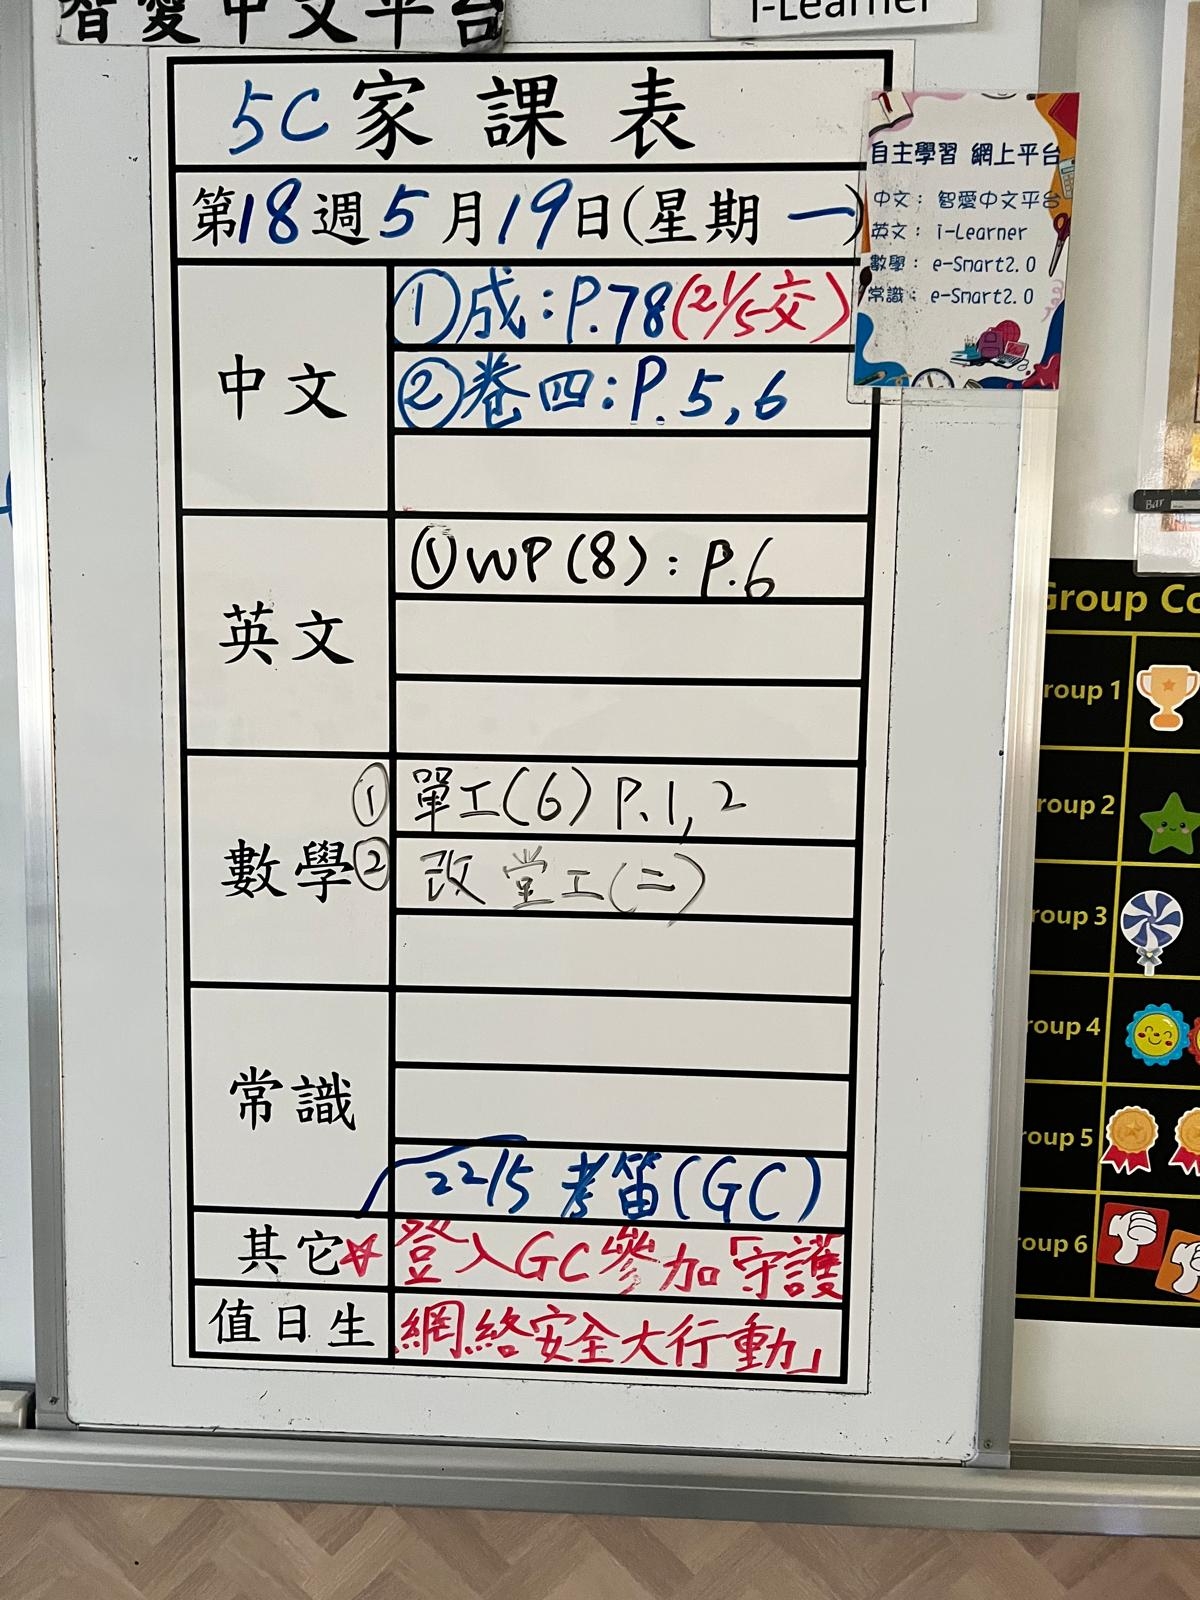 智愛中文平台
i-Learner
5C家課表
第18週5月19日(星期一)
中文
①成：P.78(21/5交)
②卷四：P.5,6
英文
①WP(8)：P.6
數學
①單工(6) P.1,2
②改堂工(二)
常識
22/5 考笛(GC)
其它☆登入GC參加「守護
值日生
網絡安全大行動」
自主學習 網上平台
中文： 智愛中文平台
英文： i-Learner
數學： e-Smart2.0
常識： e-Smart2.0
Group Co
roup 1
roup 2
roup 3
roup 4
roup 5
roup 6